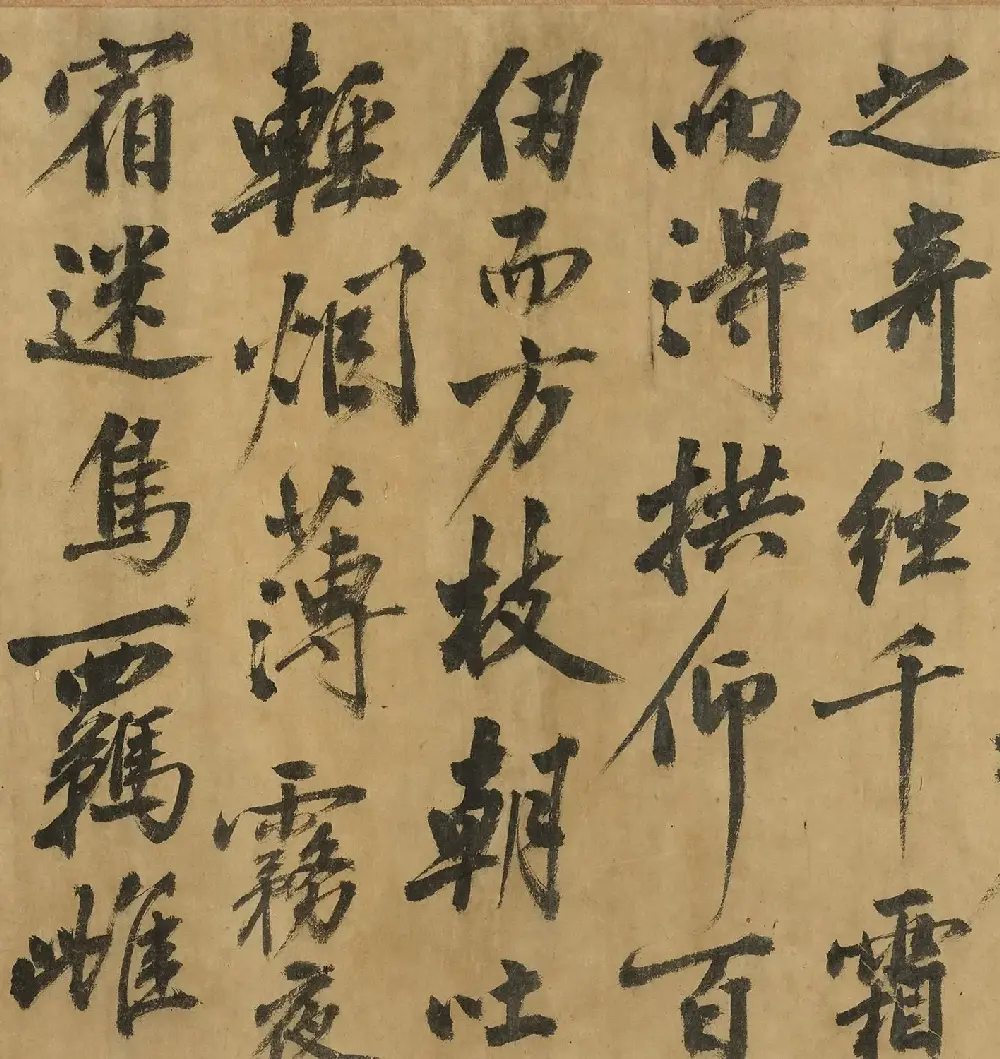 之奇經千霜
而得拱仰百
仞而方枝朝吐
輕烟薄霧夜
宿迷雋羈雌